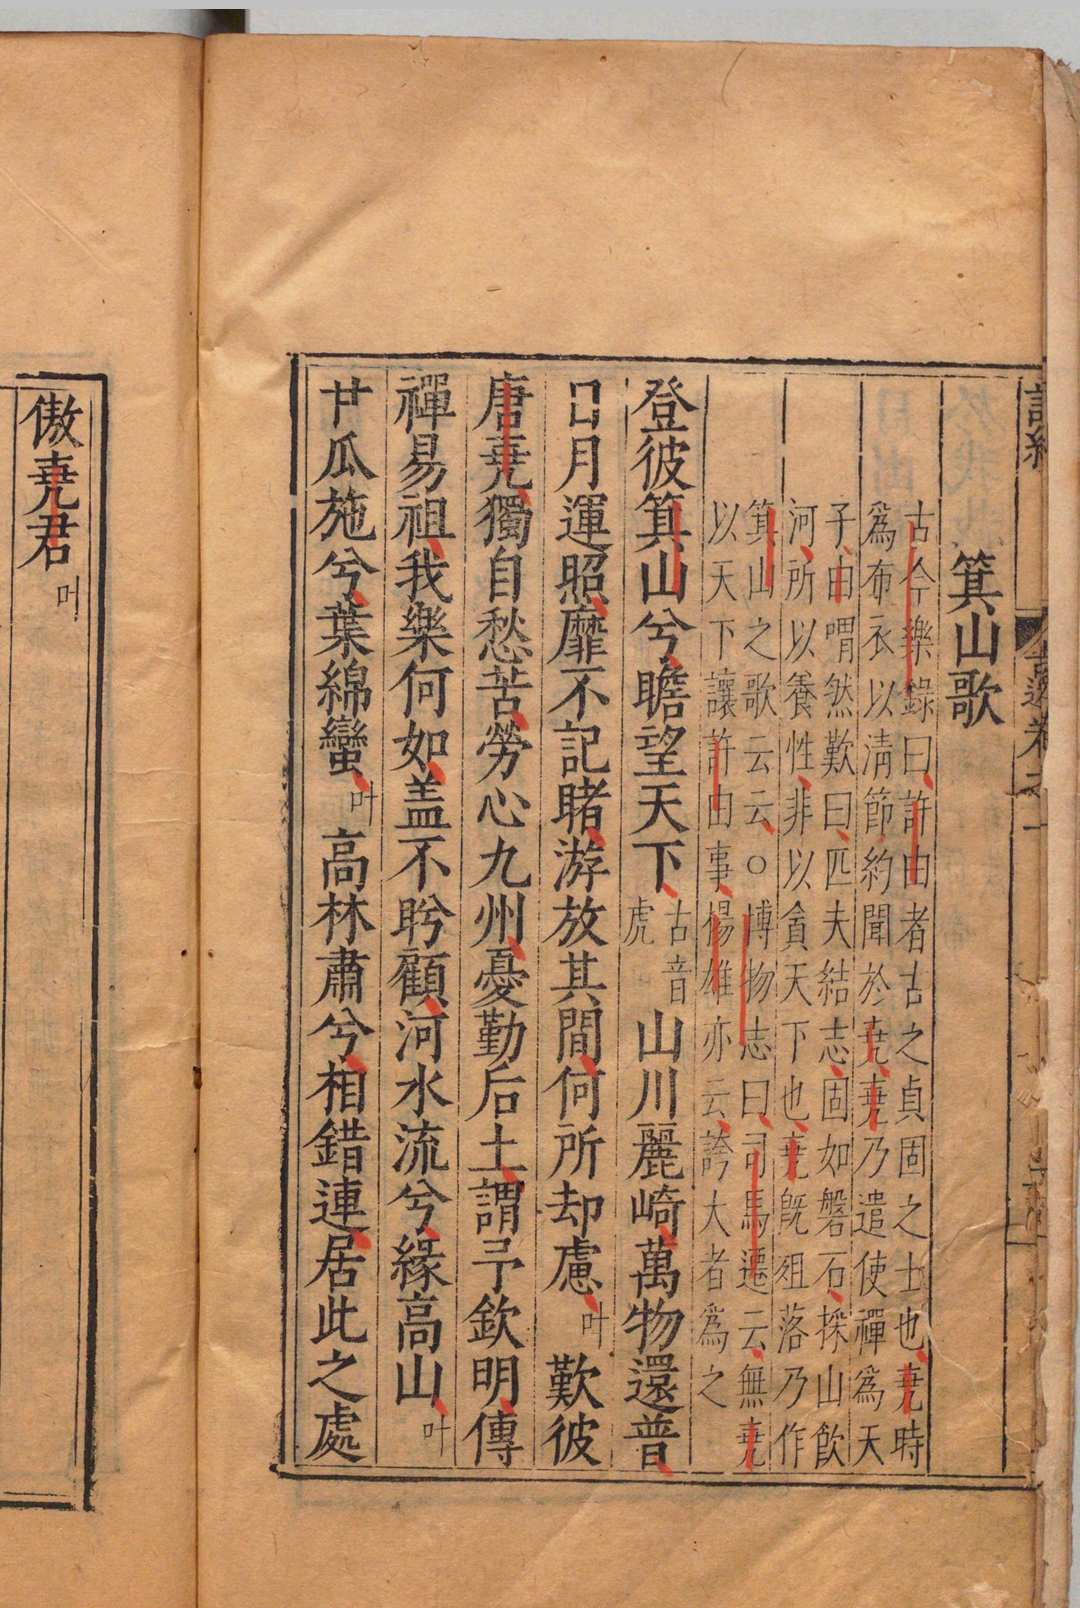 箕山歌
古今樂錄曰許由者古之貞固之士也堯時
爲布衣以清節約聞於堯堯乃遣使禪爲天
子由喟然歎曰匹夫結志固如磐石採山飲
河所以養性非以貪天下也堯既殂落乃作
箕山之歌云云○博物志曰司馬遷云無堯
以天下讓許由事楊雄亦云誇大者爲之
登彼箕山兮瞻望天下古音虎山川麗崎萬物還普
日月運照靡不記睹游放其間何所却慮叶歎彼
唐堯獨自愁苦勞心九州憂勤后土謂予欽明傳
禪易祖我樂何如盖不盻顧河水流兮緣高山叶
甘瓜施兮葉綿蠻叶高林肅兮相錯連居此之處
傲堯君叶